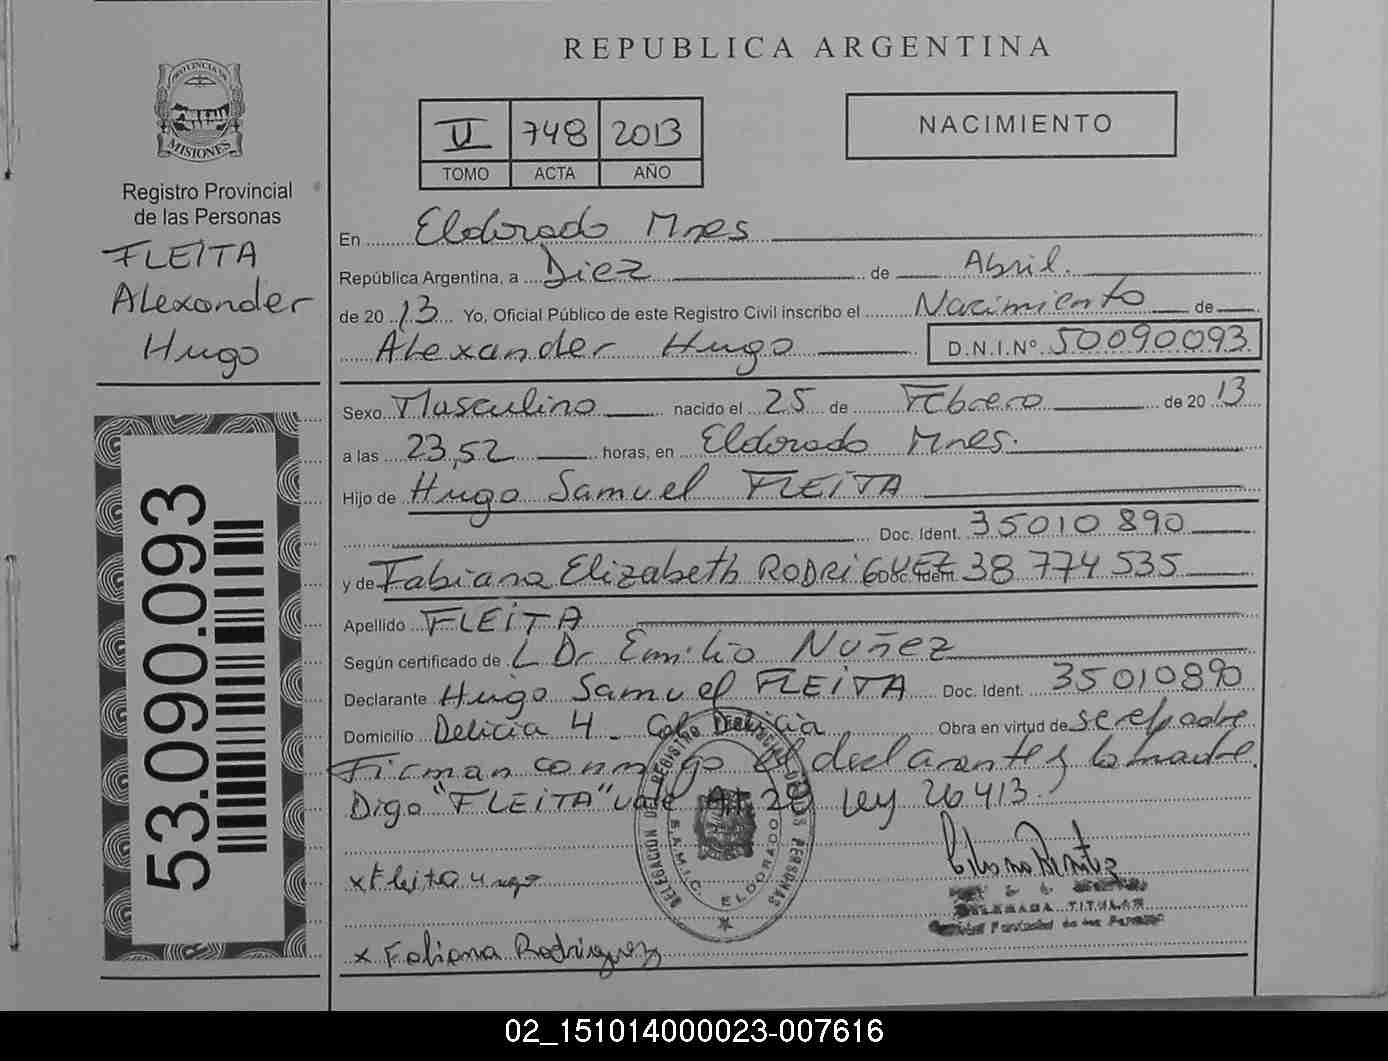 REPUBLICA ARGENTINA
PROVINCIA DE
MISIONES
Registro Provincial
de las Personas
FLEITA
Alexander
Hugo
53.090.093
II 748 2013
TOMO ACTA AÑO
NACIMIENTO
En Eldorado Mnes
República Argentina, a Diez de Abril.
de 20 13 Yo, Oficial Público de este Registro Civil inscribo el Nacimiento de
Alexander Hugo D.N.I.Nº 50090093
Sexo Masculino nacido el 25 de Febrero de 20 13
a las 23,52 horas, en Eldorado Mnes.
Hijo de Hugo Samuel FLEITA
Doc. Ident. 35010890
y de Fabiana Elizabeth RODRIGUEZ Doc. Ident. 38774535
Apellido FLEITA
Según certificado de L Dr Emilio Nuñez
Declarante Hugo Samuel FLEITA Doc. Ident. 35010890
Domicilio Delicia 4 - Cola Delicia Obra en virtud de ser el padre
Firman conmigo el declarante y la madre.
Digo "FLEITA" vale Art 20 Ley 26413.
DELEGACION DEL REGISTRO PROVINCIAL DE LAS PERSONAS
ELDORADO
x Fleita Hugo
DELEGADA TITULAR
Registro Provincial de las Personas
x Fabiana Rodriguez
02_151014000023-007616